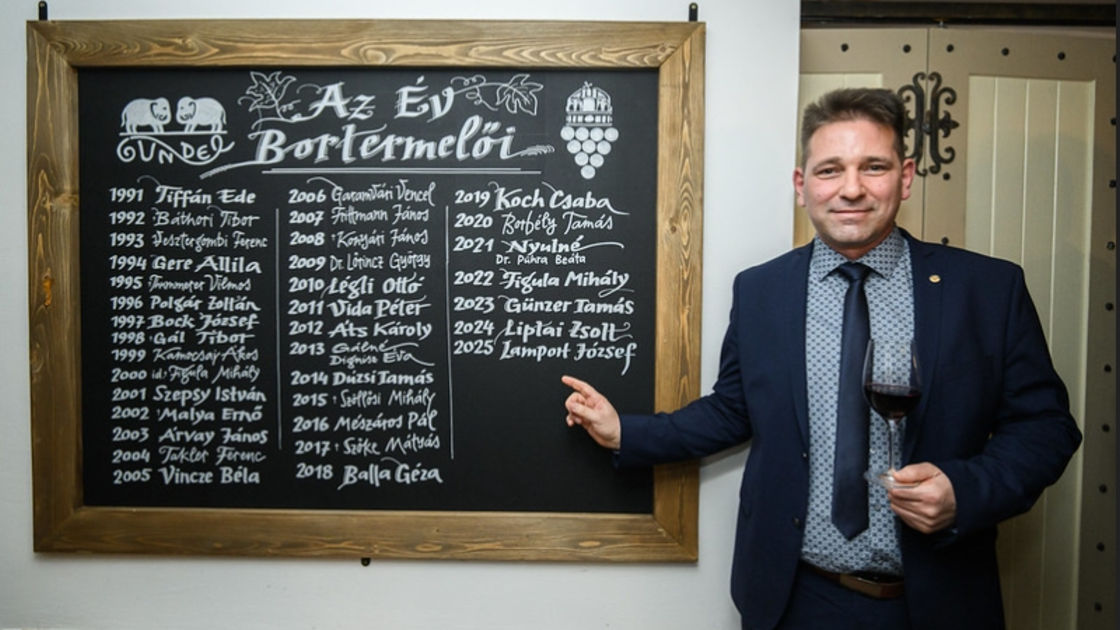 Az Év
Bortermelői
GUNDEL
1991 Tiffán Ede
1992 Báthori Tibor
1993 Vesztergombi Ferenc
1994 Gere Attila
1995 Thummerer Vilmos
1996 Polgár Zoltán
1997 Bock József
1998 Gál Tibor
1999 Kamocsay Ákos
2000 id. Figula Mihály
2001 Szepsy István
2002 Malya Ernő
2003 Árvay János
2004 Takler Ferenc
2005 Vincze Béla
2006 Garamvári Vencel
2007 Frittmann János
2008 Konyári János
2009 Dr. Lőrincz György
2010 Légli Ottó
2011 Vida Péter
2012 Áts Károly
2013 Gálné
Dignisz Éva
2014 Dúzsi Tamás
2015 Szöllősi Mihály
2016 Mészáros Pál
2017 Szőke Mátyás
2018 Balla Géza
2019 Koch Csaba
2020 Borbély Tamás
2021 Nyulné
Dr. Pühra Beáta
2022 Figula Mihály
2023 Günzer Tamás
2024 Liptai Zsolt
2025 Lamport József